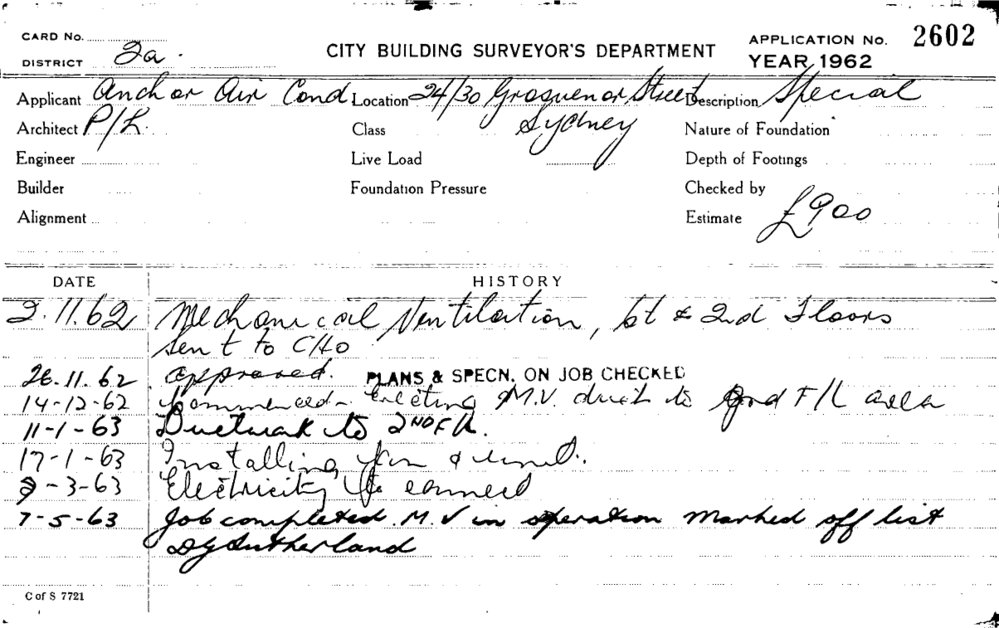 CARD No.
DISTRICT 2a.
CITY BUILDING SURVEYOR'S DEPARTMENT
APPLICATION No. 2602
YEAR 1962
Applicant Anchor Air Cond Location 24/30 Grosvenor Street Description Special
Architect P/L. Class Sydney Nature of Foundation
Engineer Live Load Depth of Footings
Builder Foundation Pressure Checked by
Alignment Estimate £900
DATE HISTORY
2.11.62 Mechanical Ventilation, 1st & 2nd Floors
Sent to CHO
26.11.62 Approved. PLANS & SPECN. ON JOB CHECKED
14-12-62 Commenced - Erecting M.V. duct to F/L area
11-1-63 Ductwork to 2ND F/L.
17-1-63 Installing fan & unit.
-3-63 Electricity to connect
7-5-63 Job completed. M.V in operation marked off list
DG Sutherland
C of S 7721